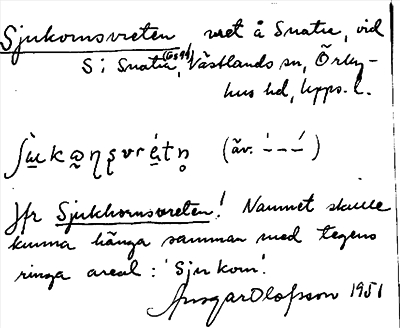 Sjukornsvreten, vret å Snatra, vid
S i Snatra, Västlands sn, Örby-
hus hd, Upps. l.
(äv. ´ – – ´)
Jfr Sjukhornsvreten! Namnet skulle
kunna hänga samman med tegens
ringa areal: 'Sju korn'.
Ansgar Olofsson 1951